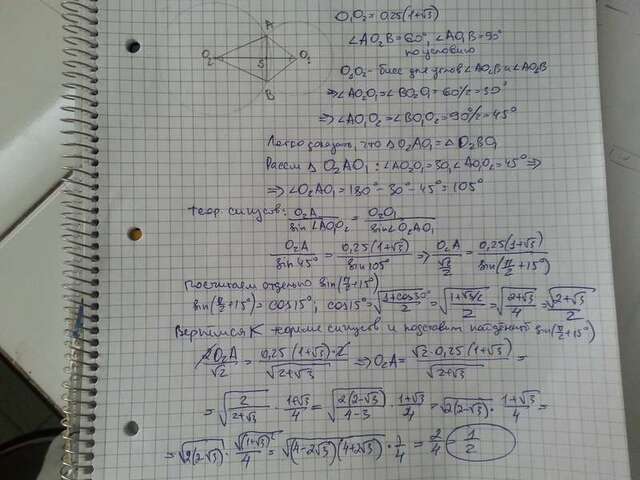 A
O₂ S O₁
B
O₁O₂ = 0,25(1+√3)
∠AO₂B = 60°, ∠AO₁B = 90°
по условию
O₁O₂ - бисс для углов ∠AO₁B и ∠AO₂B
⇒ ∠AO₂O₁ = ∠BO₂O₁ = 60/2 = 30°
⇒ ∠AO₁O₂ = ∠BO₁O₂ = 90°/2 = 45°
Легко доказать, что ΔO₂AO₁ = ΔO₂BO₁
Рассм Δ O₂AO₁ : ∠AO₂O₁ = 30, ∠AO₁O₂ = 45° ⇒
⇒ ∠O₂AO₁ = 180° - 30° - 45° = 105°
теор. синусов: O₂A / sin∠AO₁O₂ = O₂O₁ / sin∠O₂AO₁
O₂A / sin45° = 0,25(1+√3) / sin105° ⇒ O₂A / (√2/2) = 0,25(1+√3) / sin(π/2+15°)
Посчитаем отдельно sin(π/2+15°)
sin(π/2+15°) = cos15°; cos15° = √((1+cos30°)/2) = √((1+√3/2)/2) = √((2+√3)/4) = √(2+√3)/2
Вернемся к теореме синусов и подставим найденный sin(π/2+15°)
2O₂A/√2 = 0,25(1+√3)·2/√(2+√3) ⇒ O₂A = √2·0,25(1+√3)/√(2+√3) =
= √(2/(2+√3)) · (1+√3)/4 = √(2(2-√3)/(4-3)) · (1+√3)/4 = √(2(2-√3)) · (1+√3)/4 =
= √(2(2-√3)) · √((1+√3)²)/4 = √((4-2√3)(4+2√3)) · 1/4 = 2/4 = 1/2